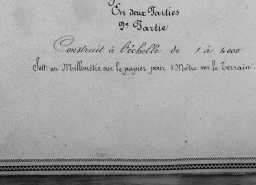 En deux Parties
2e Partie
Construit à l'échelle de 1 à 1000
Soit un Millimètre sur le papier pour 1 Mètre sur le Terrain.